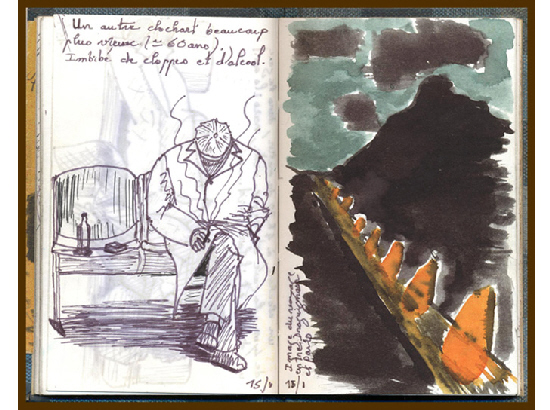 Un autre clochard beaucoup
plus vieux (≃ 60 ans).
Imbibé de cloppes et d'alcool.
15/1
15/1
Image du
et